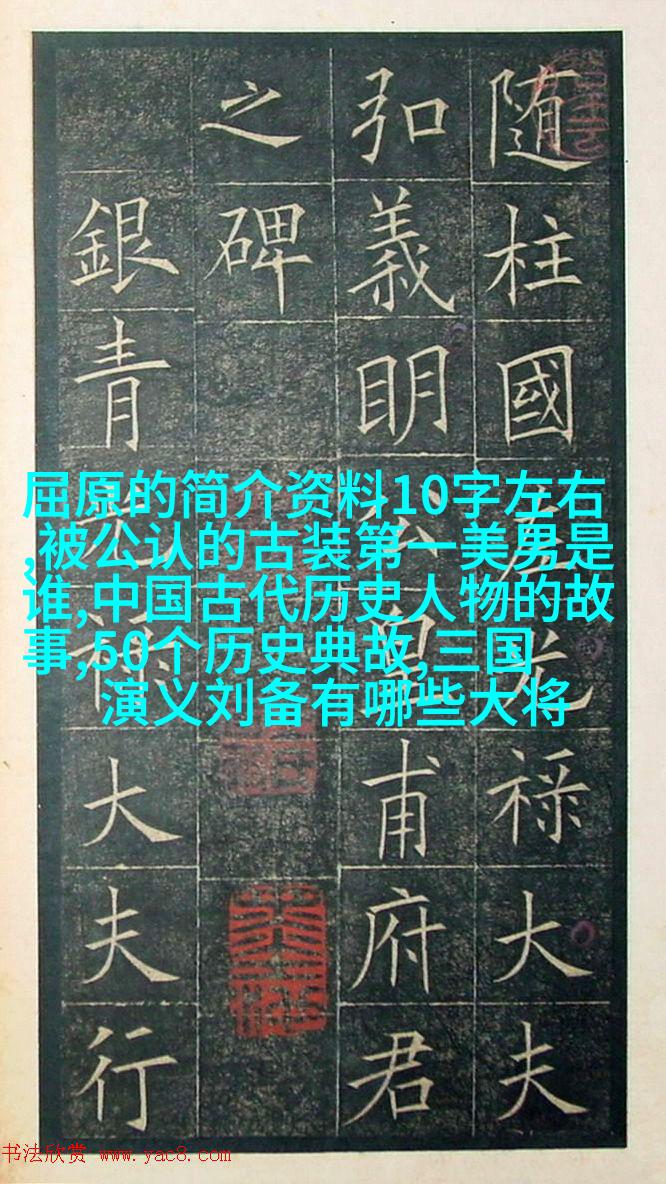 随柱國左光禄大夫
弘義明公皇甫府君
之碑
銀青光禄大夫行
屈原的简介资料10字左右
,被公认的古装第一美男是
谁,中国古代历史人物的故
事,50个历史典故,三国
演义刘备有哪些大将
书法欣赏 www.yac8.com